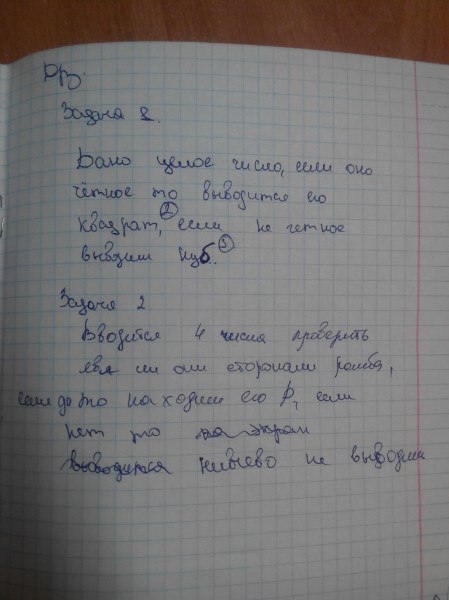 Д/з.
Задача 1.
Дано целое число, если оно
чётное то выводится его
квадрат, ② если не четное
выводим куб. ③
Задача 2
Вводится 4 числа проверить
явл ли они сторонами ромба,
если да то находим его P, если
нет то на экран
выводится ничево не выводим